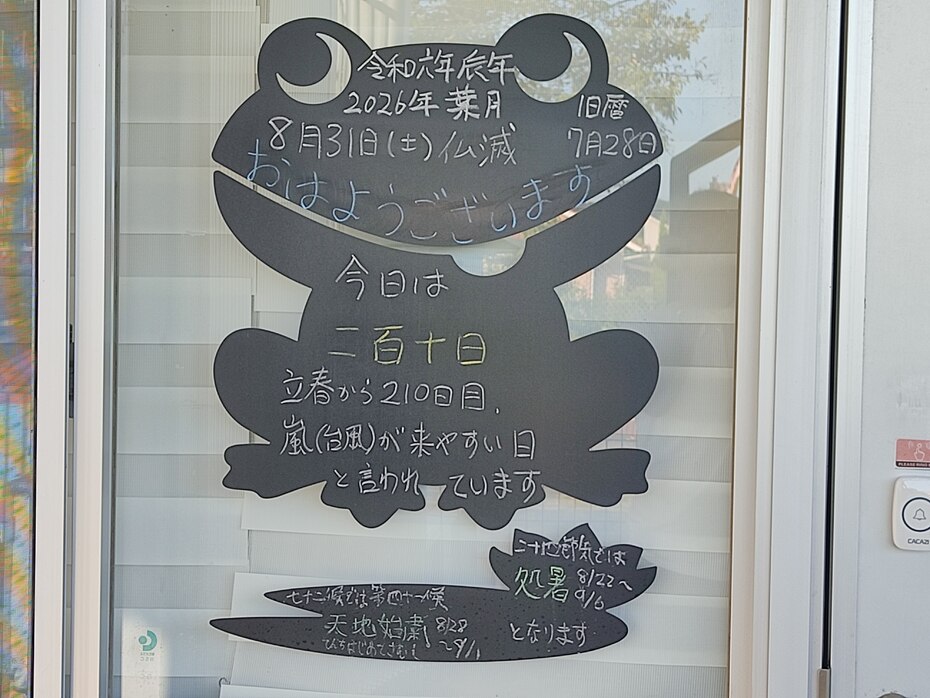 令和六年辰年
2026年 葉月
旧暦
8月31日(土)仏滅
7月28日
おはようございます
今日は
二百十日
立春から210日目、
嵐(台風)が来やすい日
と言われています
二十四節気では
処暑 8/22〜
9/6
七十二候では第四十一候
天地始粛 8/28
〜9/1
となります
CACAZI